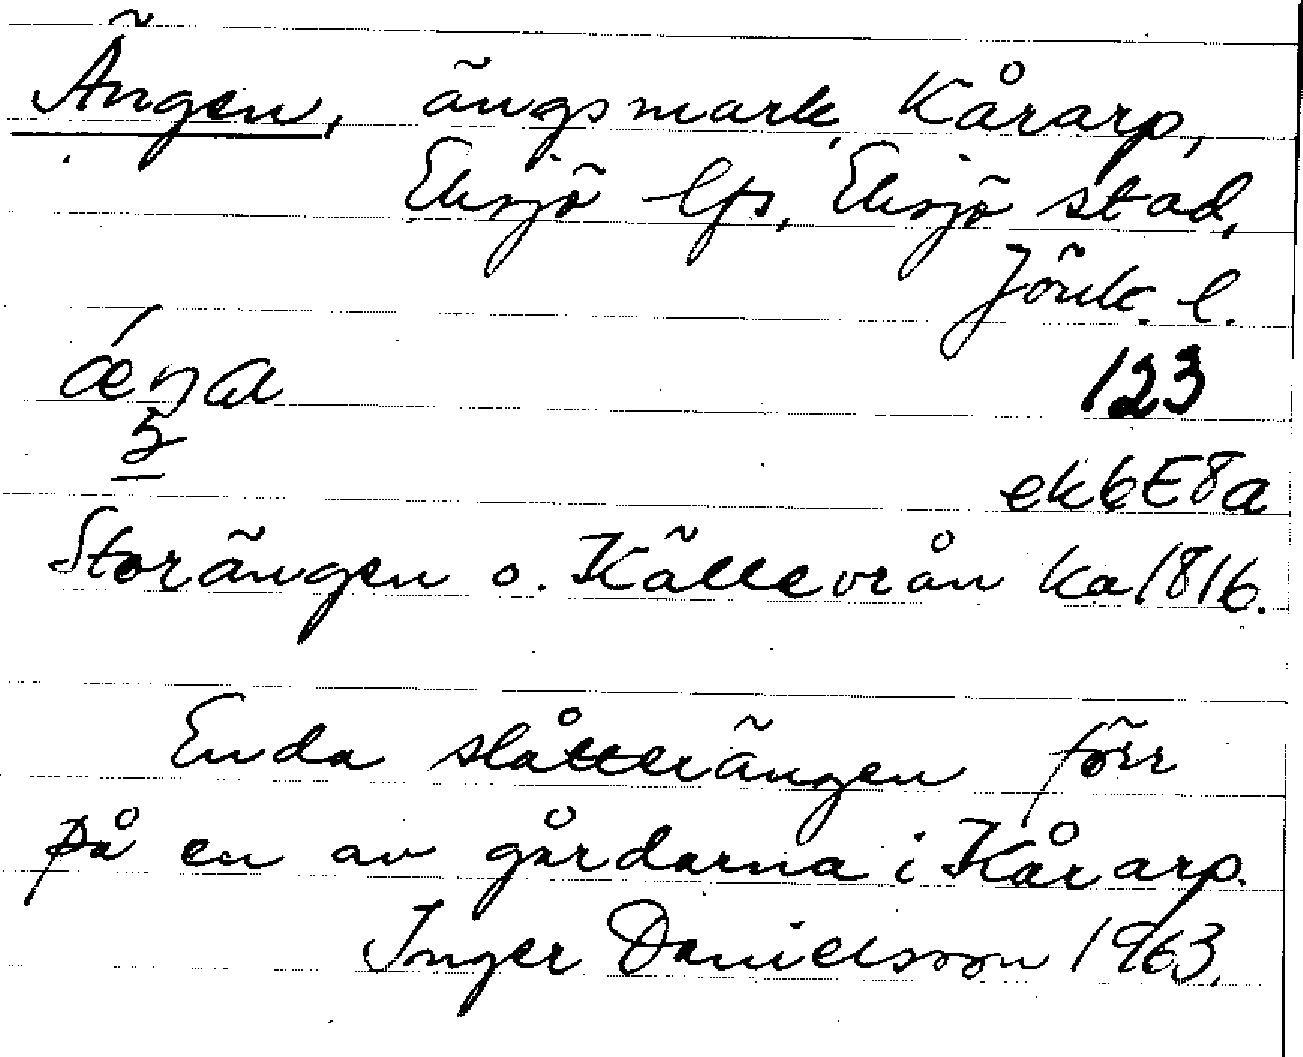 Ängen, ängsmark, Kårarp,
Eksjö lfs, Eksjö stad,
Jönk. l.
123
5
ek6E8a
Storängen o. Källevrån ka 1816.
Enda slåtterängen förr
på en av gårdarna i Kårarp.
Inger Danielsson 1963.